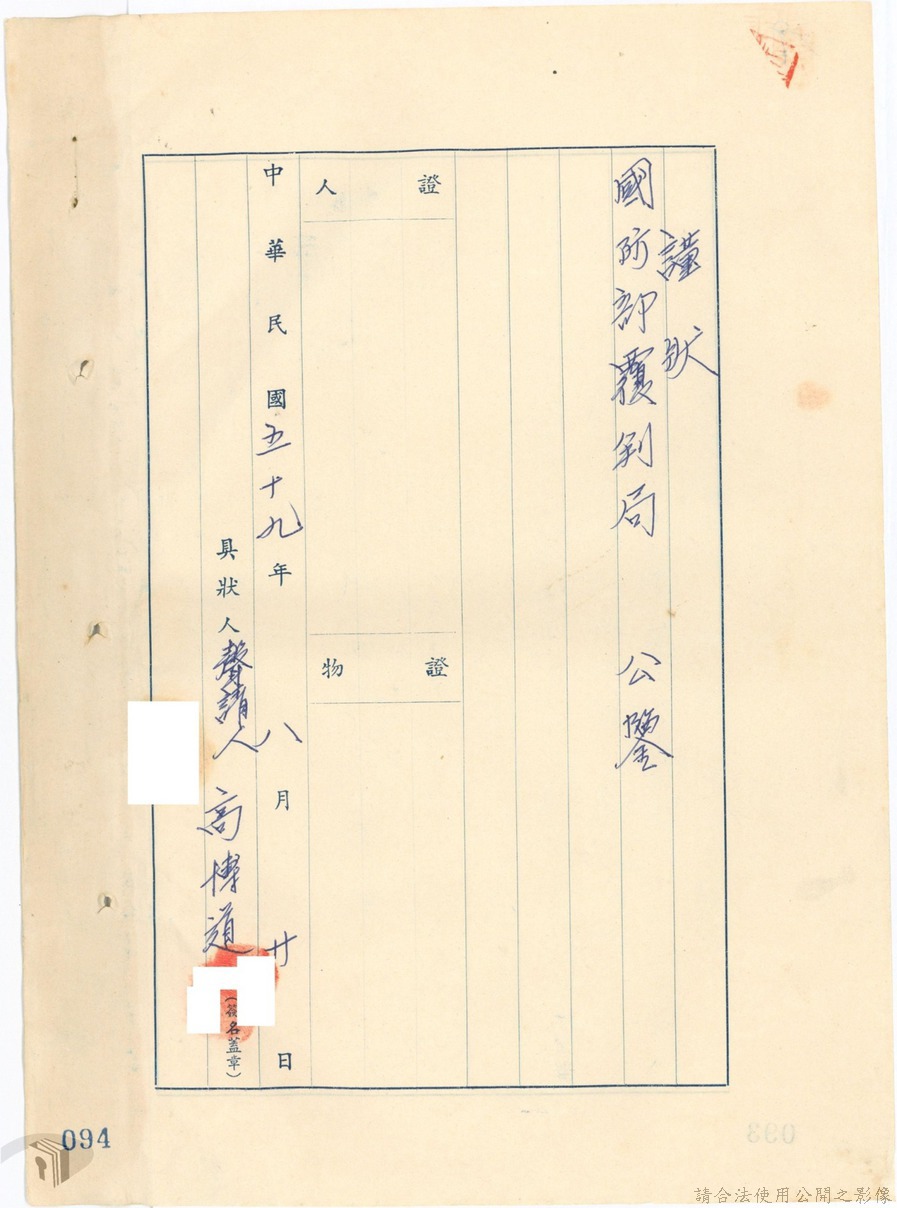 謹狀
國防部覆判局　公鑒
證人
證物
中華民國五十九年八月廿日
具狀人聲請人高博道
（簽名蓋章）
094
093
請合法使用公開之影像